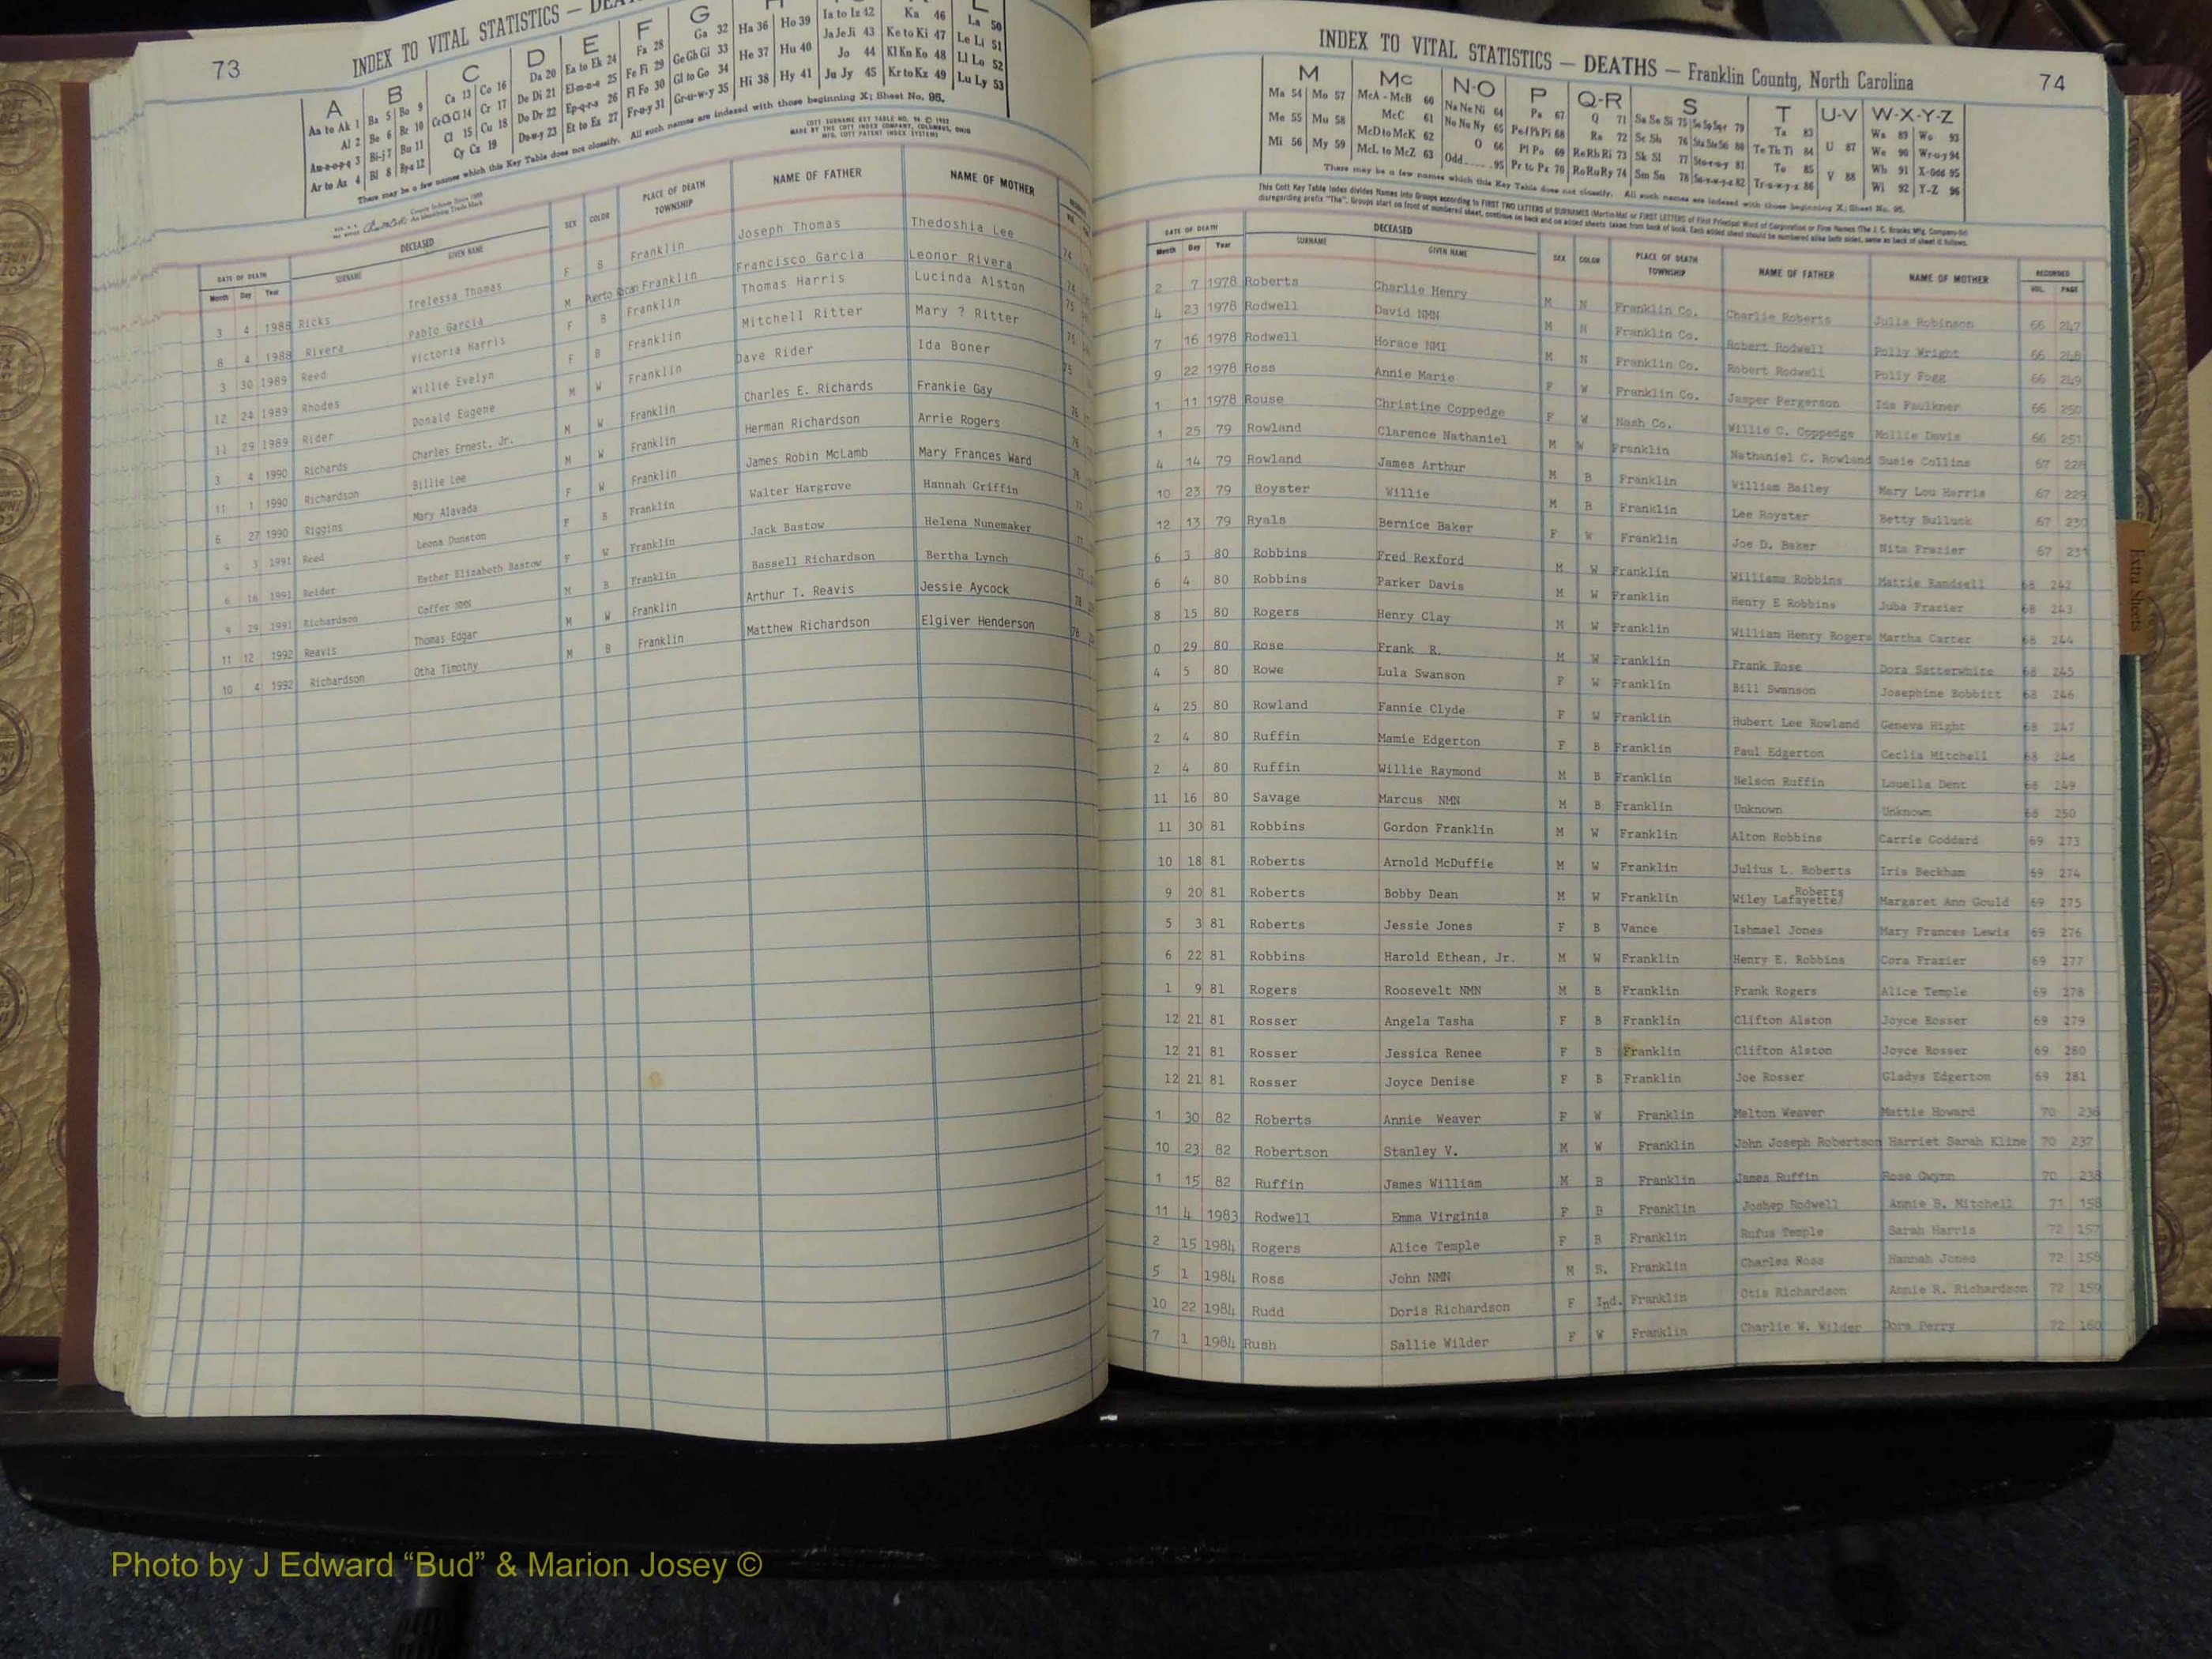 73
INDEX TO VITAL STATISTICS — DEA
A B C D E F G
Aa to Ak 1 Ba 5 Bo 9 Ca 13 Co 16 Da 20 Ea to Ek 24 Fa 28 Ga 32 Ha 36 Ho 39 Ia to Iz 42 Ka 46 La 50
Al 2 Be 6 Br 10 Ce Ch Ci 14 Cr 17 De Di 21 El-m-n-o 25 Fe Fi 29 Ge Gh Gi 33 He 37 Hu 40 Ja Je Ji 43 Ke to Ki 47 Le Li 51
Am-n-o-p-q 3 Bi-j 7 Bu 11 Cl 15 Cu 18 Do Dr 22 Ep-q-r-s 26 Fl Fo 30 Gl to Go 34 Hi 38 Hy 41 Jo 44 Kl Kn Ko 48 Ll Lo 52
Ar to Az 4 Bl 8 By-z 12 Cy Cz 19 Du-w-y 23 Et to Ez 27 Fr-u-y 31 Gr-u-w-y 35 Ju Jy 45 Kr to Kz 49 Lu Ly 53
There may be a few names which this Key Table does not classify. All such names are indexed with those beginning X; Sheet No. 95.
COTT SURNAME KEY TABLE NO.
MADE BY THE COTT INDEX COMPANY, COLUMBUS, OHIO
MFG. COTT PATENT INDEX SYSTEMS
DATE OF DEATH DECEASED SEX COLOR PLACE OF DEATH NAME OF FATHER NAME OF MOTHER
Month Day Year SURNAME GIVEN NAME TOWNSHIP
3 4 1988 Ricks Irelessa Thomas F B Franklin Joseph Thomas Thedoshia Lee
8 4 1988 Rivera Pablo Garcia M Puerto Rican Franklin Francisco Garcia Leonor Rivera
3 30 1989 Reed Victoria Harris F B Franklin Thomas Harris Lucinda Alston
12 24 1989 Rhodes Willie Evelyn F B Franklin Mitchell Ritter Mary ? Ritter
11 29 1989 Rider Donald Eugene M W Franklin Dave Rider Ida Boner
3 4 1990 Richards Charles Ernest, Jr. M W Franklin Charles E. Richards Frankie Gay
11 1 1990 Richardson Billie Lee M W Franklin Herman Richardson Arrie Rogers
6 27 1990 Riggins Mary Alavada F W Franklin James Robin McLamb Mary Frances Ward
4 3 1991 Reed Leona Dunston F B Franklin Walter Hargrove Hannah Griffin
6 16 1991 Reider Esther Elizabeth Bastow F W Franklin Jack Bastow Helena Nunemaker
9 29 1991 Richardson Coffer NMN M B Franklin Bassell Richardson Bertha Lynch
11 12 1992 Reavis Thomas Edgar M W Franklin Arthur T. Reavis Jessie Aycock
10 4 1992 Richardson Otha Timothy M B Franklin Matthew Richardson Elgiver Henderson
INDEX TO VITAL STATISTICS — DEATHS — Franklin County, North Carolina 74
M Mc N-O P Q-R S T U-V W-X-Y-Z
Ma 54 Mo 57 McA - McB 60 Na Ne Ni 64 Pa 67 Q 71 Sa Se Si 75 Sn So Sp-r 79 Ta 83 U 87 Wa 89 Wo 93
Me 55 Mu 58 McC 61 No Nu Ny 65 Pe-f Ph Pi 68 Ra 72 Sc Sh 76 Sta Ste 80 Te Th Ti 84 V 88 We 90 Wr-u-y 94
Mi 56 My 59 McD to McK 62 O 66 Pl Po 69 Re Rh Ri 73 Sk Sl 77 Sto-r-u-y 81 To 85 Wh 91 X-Odd 95
McL to McZ 63 Odd 95 Pr to Pz 70 Ro Ru Ry 74 Sm Sn 78 Su-v-w-y-z 82 Tr-u-w-y-z 86 Wi 92 Y-Z 96
There may be a few names which this Key Table does not classify. All such names are indexed with those beginning X; Sheet No. 95.
DATE OF DEATH DECEASED SEX COLOR PLACE OF DEATH NAME OF FATHER NAME OF MOTHER RECORDED
Month Day Year SURNAME GIVEN NAME TOWNSHIP VOL. PAGE
2 7 1978 Roberts Charlie Henry M N Franklin Co. Charlie Roberts Julia Robinson 66 247
4 23 1978 Rodwell David NMN M N Franklin Co. Robert Rodwell Polly Wright 66 248
7 16 1978 Rodwell Horace NMI M N Franklin Co. Robert Rodwell Polly Fogg 66 249
9 22 1978 Ross Annie Marie F W Franklin Co. Jasper Pergerson Ida Faulkner 66 250
1 11 1978 Rouse Christine Coppedge F W Nash Co. Willie C. Coppedge Mollie Davis 66 251
1 25 79 Rowland Clarence Nathaniel M W Franklin Nathaniel C. Rowland Susie Collins 67 228
4 14 79 Rowland James Arthur M B Franklin William Bailey Mary Lou Harris 67 229
10 23 79 Royster Willie M B Franklin Lee Royster Betty Bulluck 67 230
12 13 79 Ryals Bernice Baker F W Franklin Joe D. Baker Nita Frazier 67 231
6 3 80 Robbins Fred Rexford M W Franklin Williams Robbins Mattie Randsell 68 242
6 4 80 Robbins Parker Davis M W Franklin Henry E Robbins Juba Frazier 68 243
8 15 80 Rogers Henry Clay M W Franklin William Henry Rogers Martha Carter 68 244
0 29 80 Rose Frank R. M W Franklin Frank Rose Dora Satterwhite 68 245
4 5 80 Rowe Lula Swanson F W Franklin Bill Swanson Josephine Bobbitt 68 246
4 25 80 Rowland Fannie Clyde F W Franklin Hubert Lee Rowland Geneva Hight 68 247
2 4 80 Ruffin Mamie Edgerton F B Franklin Paul Edgerton Ceclia Mitchell 68 248
2 4 80 Ruffin Willie Raymond M B Franklin Nelson Ruffin Louella Dent 68 249
11 16 80 Savage Marcus NMN M B Franklin Unknown Unknown 68 250
11 30 81 Robbins Gordon Franklin M W Franklin Alton Robbins Carrie Goddard 69 273
10 18 81 Roberts Arnold McDuffie M W Franklin Julius L. Roberts Iris Beckham 69 274
9 20 81 Roberts Bobby Dean M W Franklin Wiley Lafayette/ Roberts Margaret Ann Gould 69 275
5 3 81 Roberts Jessie Jones F B Vance Ishmael Jones Mary Frances Lewis 69 276
6 22 81 Robbins Harold Ethean, Jr. M W Franklin Henry E. Robbins Cora Frazier 69 277
1 9 81 Rogers Roosevelt NMN M B Franklin Frank Rogers Alice Temple 69 278
12 21 81 Rosser Angela Tasha F B Franklin Clifton Alston Joyce Rosser 69 279
12 21 81 Rosser Jessica Renee F B Franklin Clifton Alston Joyce Rosser 69 280
12 21 81 Rosser Joyce Denise F B Franklin Joe Rosser Gladys Edgerton 69 281
1 30 82 Roberts Annie Weaver F W Franklin Melton Weaver Mattie Howard 70 236
10 23 82 Robertson Stanley V. M W Franklin John Joseph Robertson Harriet Sarah Kline 70 237
1 15 82 Ruffin James William M B Franklin James Ruffin Rose Gwynn 70 238
11 4 1983 Rodwell Emma Virginia F B Franklin Joshep Rodwell Annie B. Mitchell 71 158
2 15 1984 Rogers Alice Temple F B Franklin Rufus Temple Sarah Harris 72 157
5 1 1984 Ross John NMN M B. Franklin Charles Ross Hannah Jones 72 158
10 22 1984 Rudd Doris Richardson F Ind. Franklin Otis Richardson Annie R. Richardson 72 159
7 1 1984 Rush Sallie Wilder F W Franklin Charlie W. Wilder Dora Perry 72 160
Extra Sheets
Photo by J Edward “Bud” & Marion Josey ©